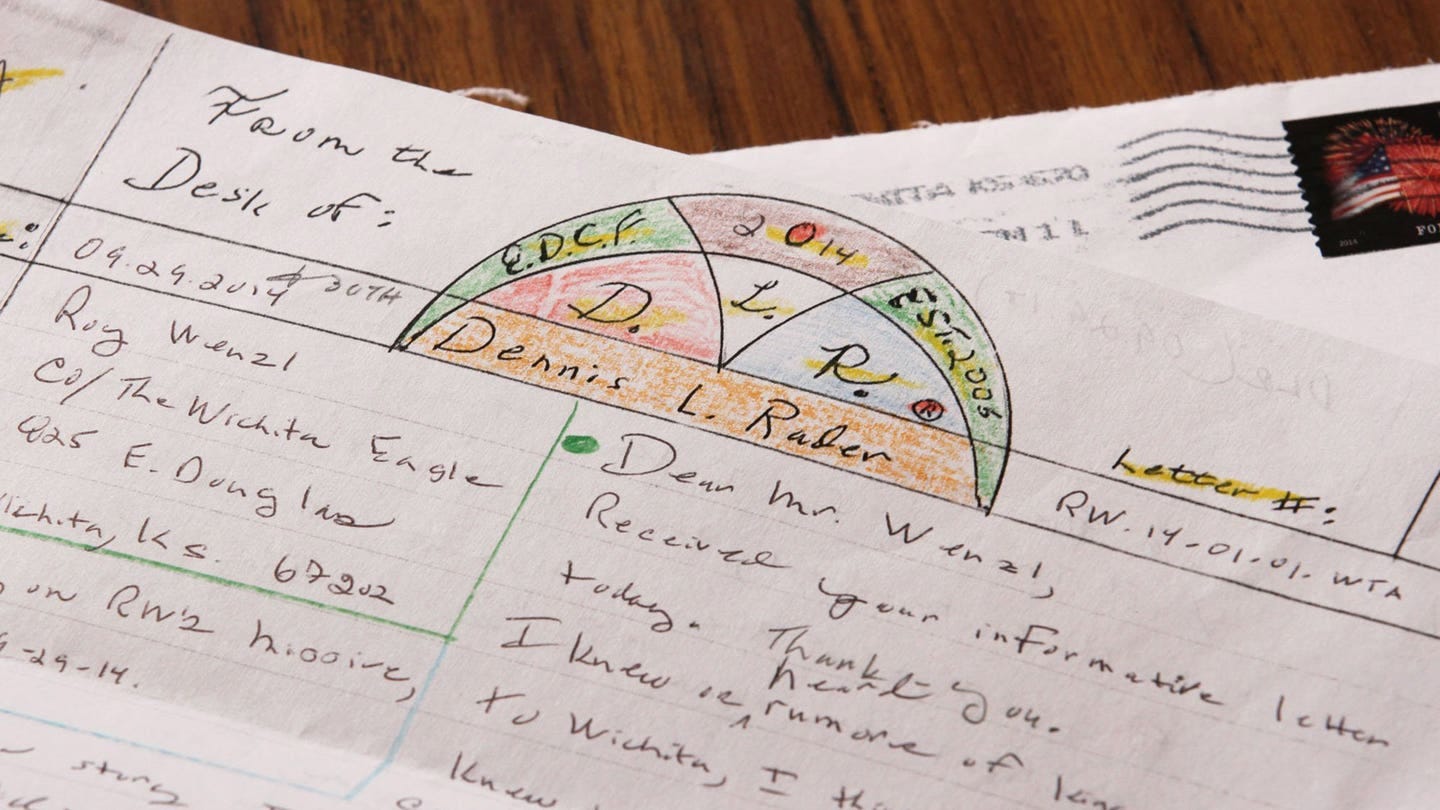 From the
Desk of:
E.D.C.F.
2014
EST. 2005
D.
L.
R.
®
Dennis L. Rader
09.29.2014 & 30TH
Roy Wenzl
Co/The Wichita Eagle
825 E. Douglas
Wichita, Ks. 67202
on RW'2
9-29-14.
story
Letter #:
RW.14-01.01.WTA
Dear Mr. Wenzl,
Received your informative letter
today. Thank you.
I knew or heard rumore of
to Wichita, I
knew
KS 670
FO
2014